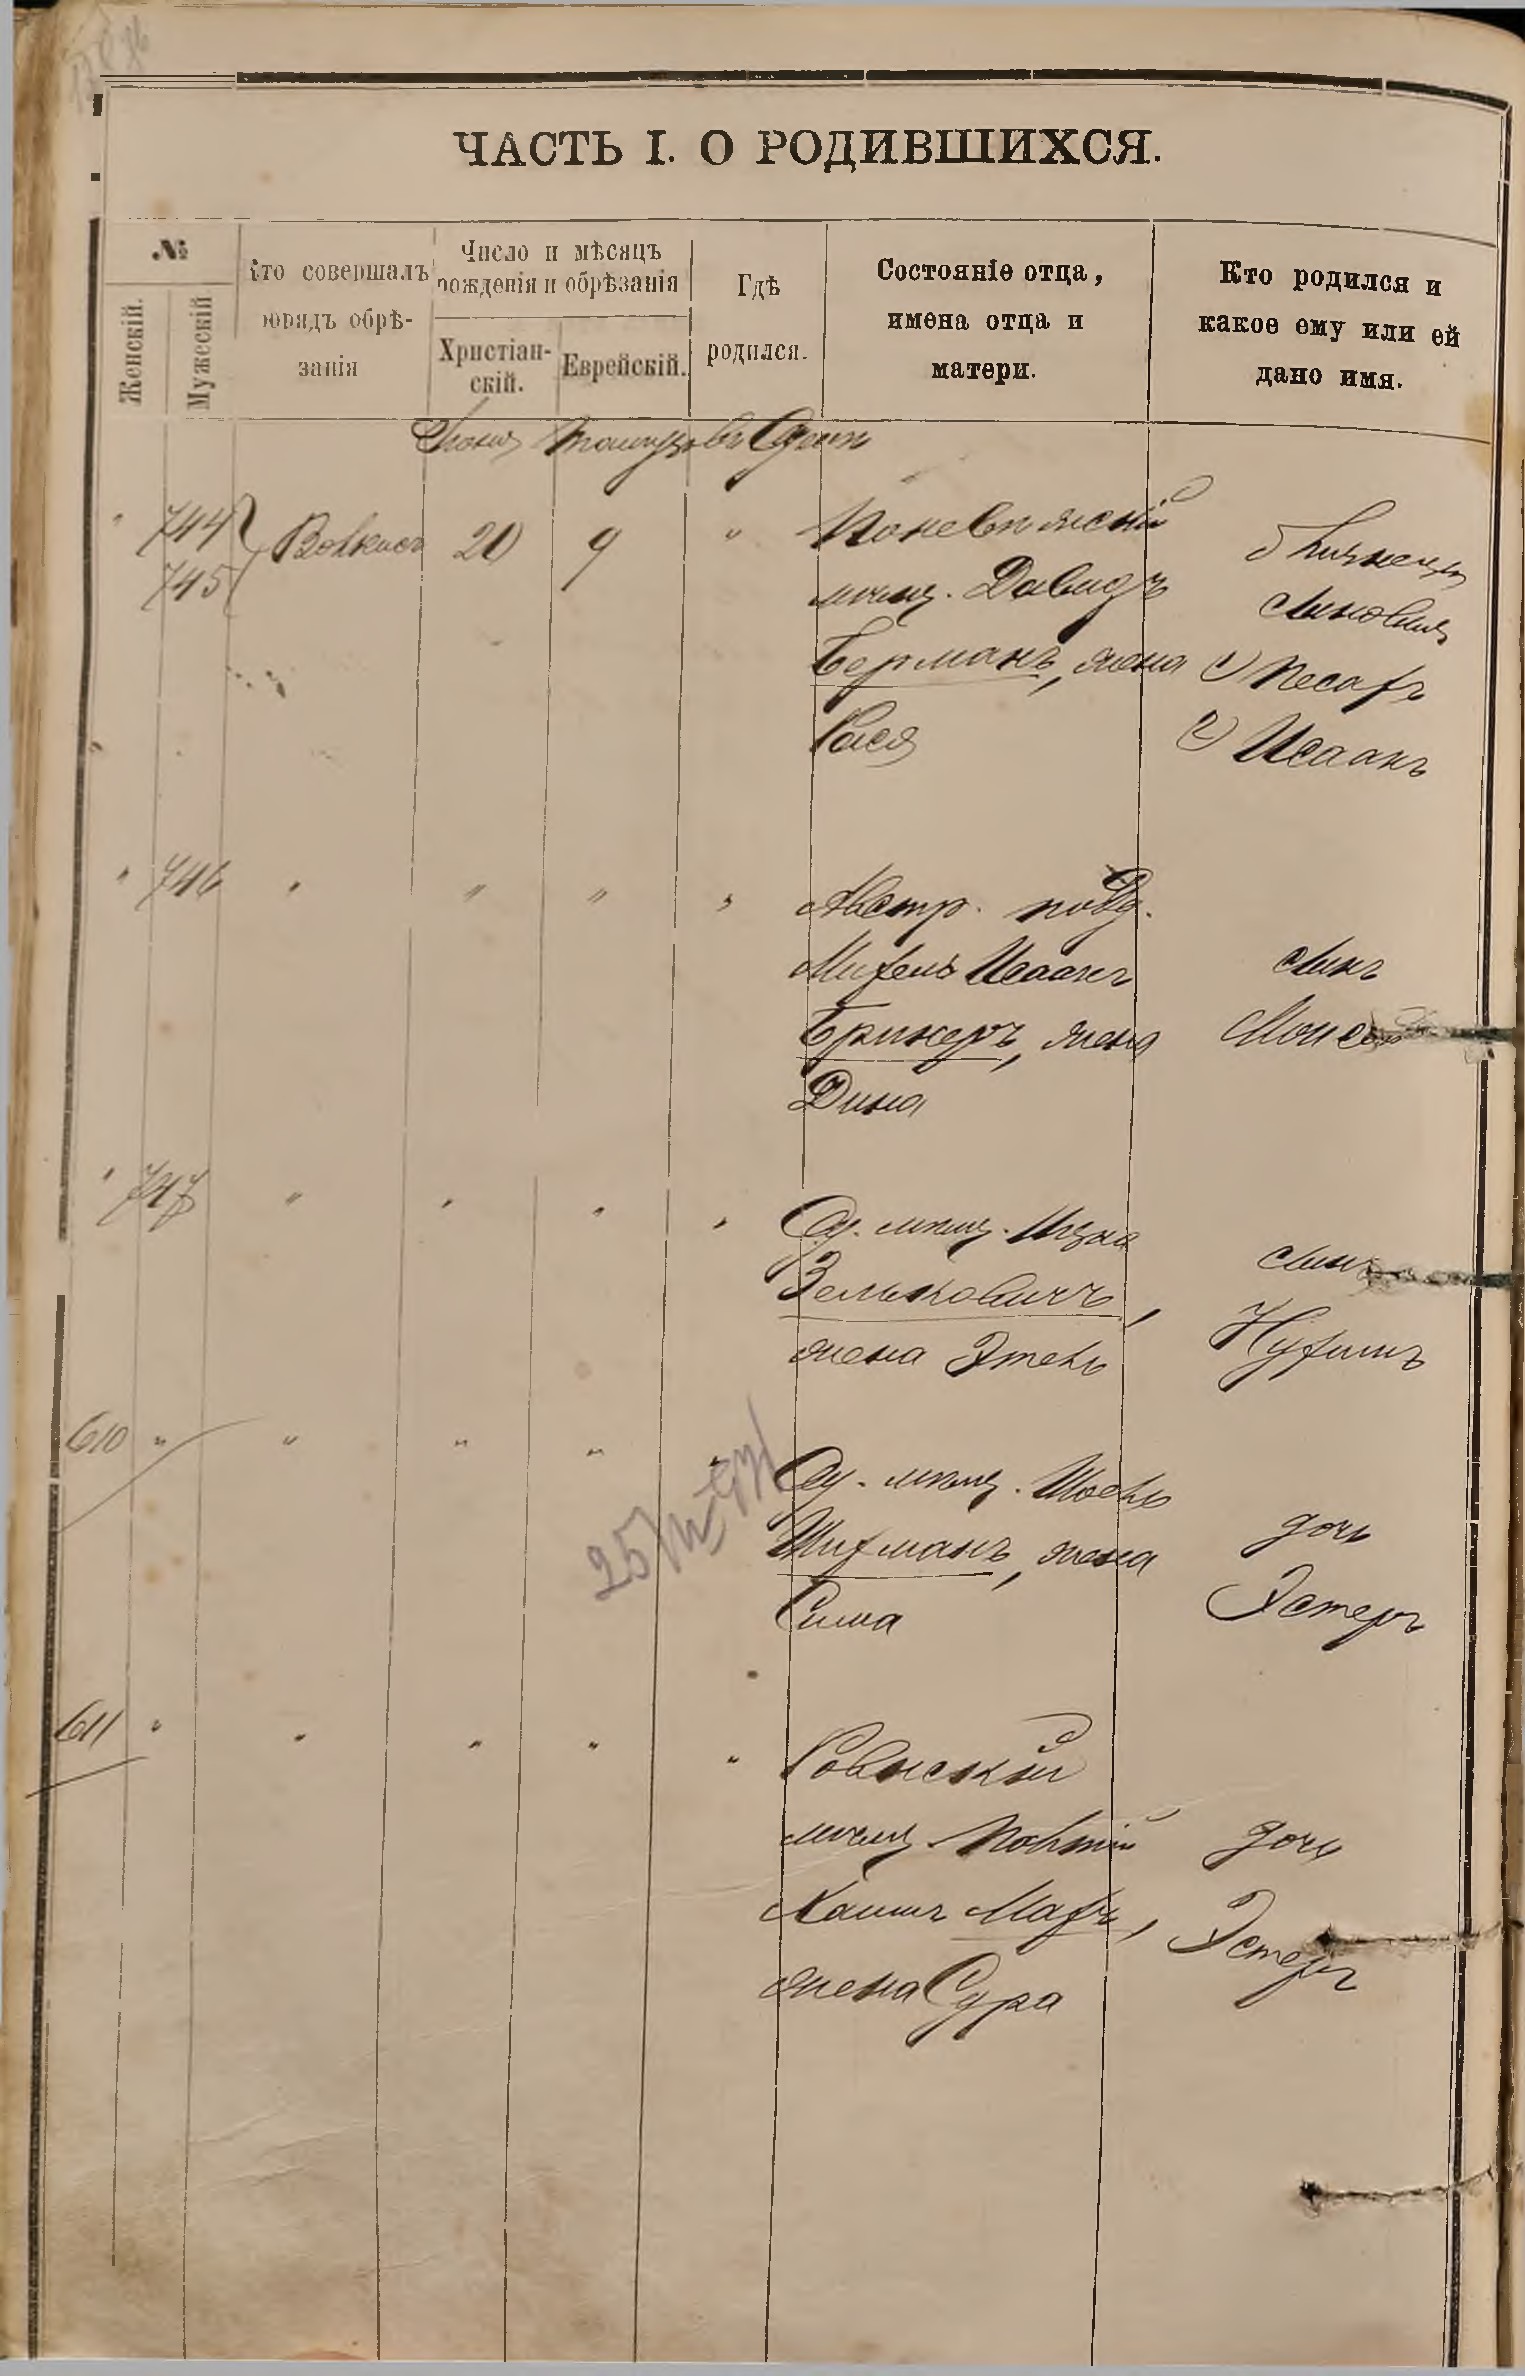 ЧАСТЬ I. О РОДИВШИХСЯ.
№
Женскій.
Мужескій
Кто совершалъ
обрядъ обрѣ-
занія
Число и мѣсяцъ
рожденія и обрѣзанія
Христіан-
скій.
Еврейскій.
Гдѣ
родился.
Состояніе отца,
имена отца и
матери.
Кто родился и
какое ему или ей
дано имя.
Іюнь Тамузъ въ Одессѣ
" 744
745
20 9 " Поневѣжскій
мѣщ. Давидъ
Берманъ, жена
Рася
близнецы
сыновья
1) Песахъ
2) Исаакъ
" 746 " " " " Австр. подд.
Михель Исаакъ
Брикеръ, жена
Дина
сынъ
" 747 " " " " Од. мѣщ. Ицко
Зельковичъ,
жена Этель
сынъ
Нухимъ
610 " " " " " Од. мѣщ. Іосъ
Шихманъ, жена
Сима
дочь
Эстеръ
611 " " " " " Ровнскій
мѣщ.
Хаимъ
жена Сура
дочь
Эстеръ